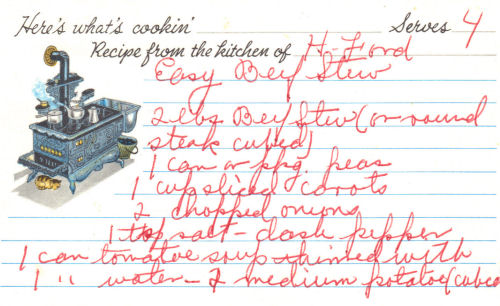 Here's what's cookin' Serves 4
Recipe from the kitchen of H. Ford
Easy Beef Stew
2 lbs Beef Stew (or round
steak cubed)
1 can or pkg. peas
1 cup sliced carots
2 chopped onions
1 tsp salt - dash pepper
1 can tomatoe soup thinned with
1 " water - 2 medium potatoe (cubed